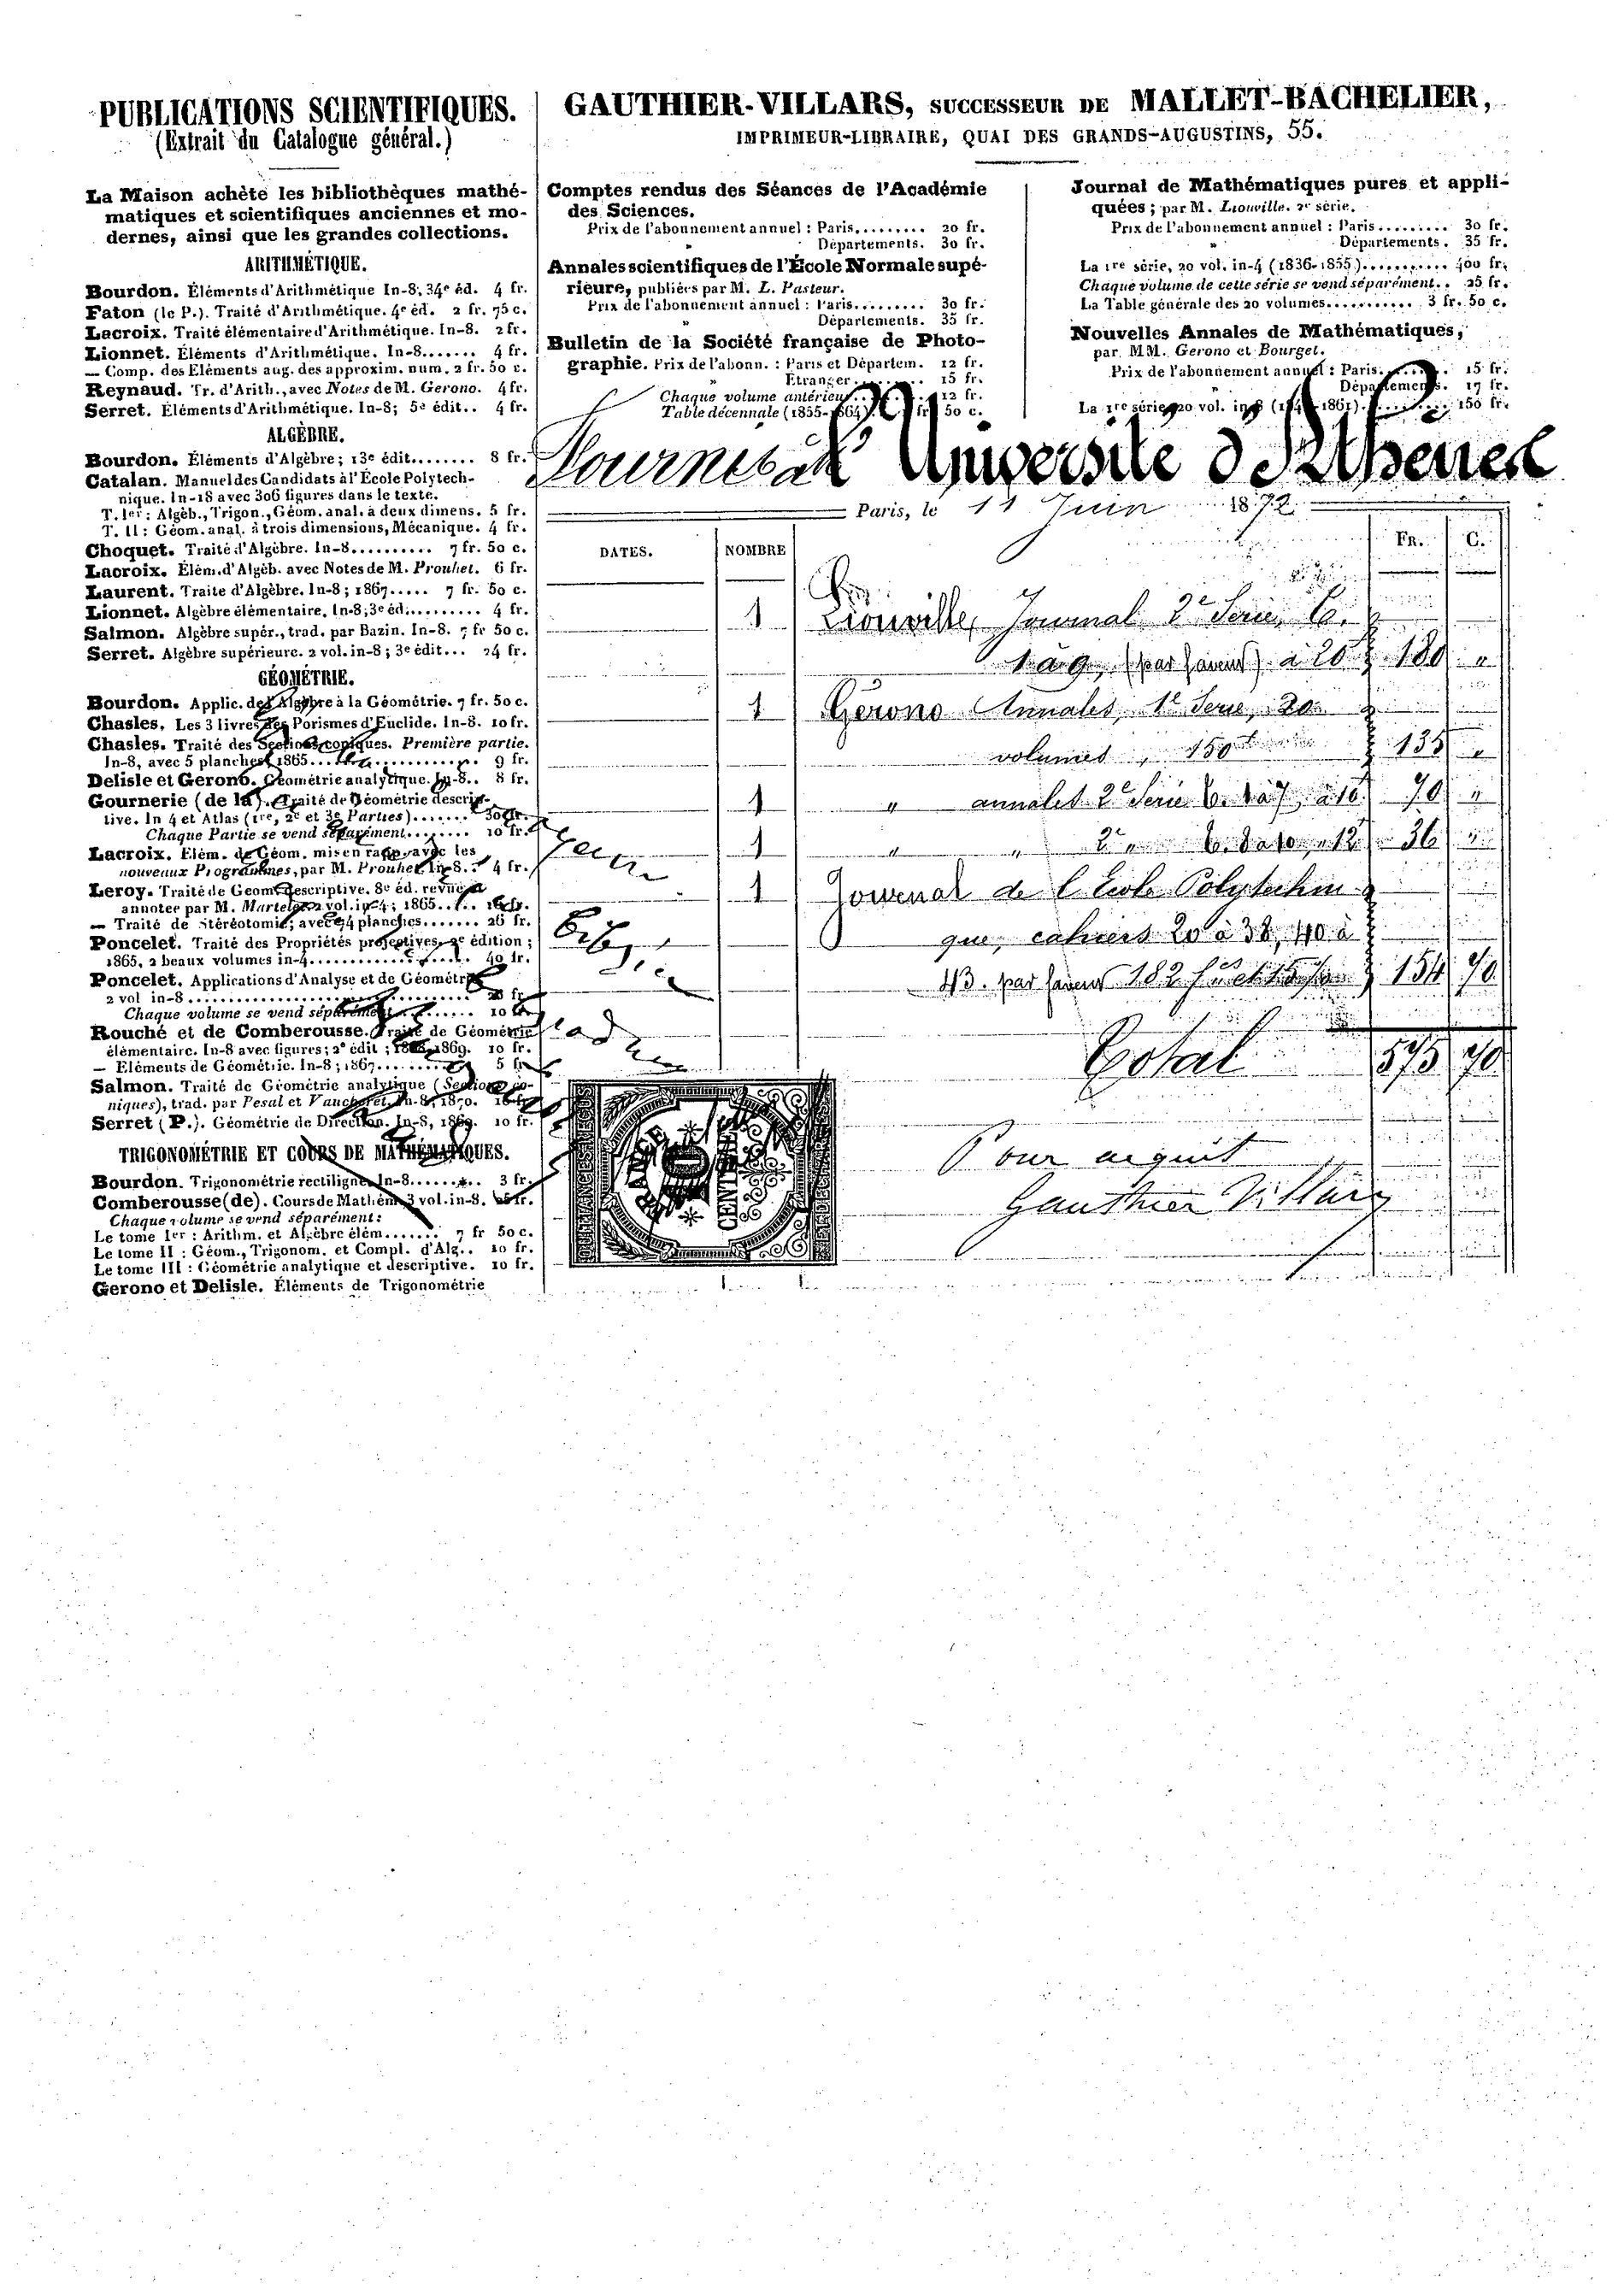 PUBLICATIONS SCIENTIFIQUES.
(Extrait du Catalogue général.)
La Maison achète les bibliothèques mathé-
matiques et scientifiques anciennes et mo-
dernes, ainsi que les grandes collections.
ARITHMÉTIQUE.
Bourdon. Éléments d'Arithmétique In-8; 34e éd. 4 fr.
Faton (le P.). Traité d'Arithmétique. 4e éd. 2 fr. 75 c.
Lacroix. Traité élémentaire d'Arithmétique. In-8. 2 fr.
Lionnet. Éléments d'Arithmétique. In-8....... 4 fr.
— Comp. des Éléments aug. des approxim. num. 2 fr. 50 c.
Reynaud. Tr. d'Arith., avec Notes de M. Gerono. 4 fr.
Serret. Éléments d'Arithmétique. In-8; 5e édit.. 4 fr.
ALGÈBRE.
Bourdon. Éléments d'Algèbre; 13e édit........ 8 fr.
Catalan. Manuel des Candidats à l'École Polytech-
nique. In-18 avec 306 figures dans le texte.
T. Ier: Algèb., Trigon., Géom. anal. à deux dimens. 5 fr.
T. II: Géom. anal. à trois dimensions, Mécanique. 4 fr.
Choquet. Traité d'Algèbre. In-8.......... 7 fr. 50 c.
Lacroix. Élém. d'Algèb. avec Notes de M. Prouhet. 6 fr.
Laurent. Traité d'Algèbre. In-8; 1867..... 7 fr. 50 c.
Lionnet. Algèbre élémentaire. In-8; 3e éd.......... 4 fr.
Salmon. Algèbre supér., trad. par Bazin. In-8. 7 fr 50 c.
Serret. Algèbre supérieure. 2 vol. in-8; 3e édit... 24 fr.
GÉOMÉTRIE.
Bourdon. Applic. de l'Algèbre à la Géométrie. 7 fr. 50 c.
Chasles. Les 3 livres des Porismes d'Euclide. In-8. 10 fr.
Chasles. Traité des Sections coniques. Première partie.
In-8, avec 5 planches; 1865.................. 9 fr.
Delisle et Gerono. Géométrie analytique. In-8.. 8 fr.
Gournerie (de la). Traité de Géométrie descrip-
tive. In 4 et Atlas (1re, 2e et 3e Parties)....... 30 fr.
Chaque Partie se vend séparément........ 10 fr.
Lacroix. Élém. de Géom. mis en rapp. avec les
nouveaux Programmes, par M. Prouhet. In-8.. 4 fr.
Leroy. Traité de Géom. descriptive. 8e éd. revue
annotée par M. Martelet. 2 vol. in-4; 1865.... 16 fr.
— Traité de Stéréotomie; avec 74 planches....... 26 fr.
Poncelet. Traité des Propriétés projectives. 2e édition;
1865. 2 beaux volumes in-4................... 40 fr.
Poncelet. Applications d'Analyse et de Géométrie
2 vol in-8................................ 20 fr.
Chaque volume se vend séparément........ 10 fr.
Rouché et de Comberousse. Traité de Géométrie
élémentaire. In-8 avec figures; 2e édit; 1868-1869. 10 fr.
— Éléments de Géométrie. In-8; 1867.......... 5 fr.
Salmon. Traité de Géométrie analytique (Sections co-
niques), trad. par Resal et Vaucheret. In-8, 1870.
Serret (P.). Géométrie de Direction. In-8, 1869. 10 fr.
TRIGONOMÉTRIE ET COURS DE MATHÉMATIQUES.
Bourdon. Trigonométrie rectiligne. In-8........ 3 fr.
Comberousse (de). Cours de Mathém. 3 vol. in-8.
Chaque volume se vend séparément:
Le tome Ier: Arithm. et Algèbre élém....... 7 fr 50 c.
Le tome II: Géom., Trigonom. et Compl. d'Alg.. 10 fr.
Le tome III: Géométrie analytique et descriptive. 10 fr.
Gerono et Delisle. Éléments de Trigonométrie
GAUTHIER-VILLARS, SUCCESSEUR DE MALLET-BACHELIER,
IMPRIMEUR-LIBRAIRE, QUAI DES GRANDS-AUGUSTINS, 55.
Comptes rendus des Séances de l'Académie
des Sciences.
Prix de l'abonnement annuel: Paris......... 20 fr.
" Départements. 30 fr.
Annales scientifiques de l'École Normale supé-
rieure, publiées par M. L. Pasteur.
Prix de l'abonnement annuel: Paris......... 30 fr.
" Départements. 35 fr.
Bulletin de la Société française de Photo-
graphie. Prix de l'abonn.: Paris et Départem. 12 fr.
" Étranger......... 15 fr.
Chaque volume antérieur....... 12 fr.
Table décennale (1855-1864). 1 fr. 50 c.
Journal de Mathématiques pures et appli-
quées; par M. Liouville. 2e série.
Prix de l'abonnement annuel: Paris......... 30 fr.
" Départements. 35 fr.
La 1re série, 20 vol. in-4 (1836-1855)........... 400 fr.
Chaque volume de cette série se vend séparément.. 25 fr.
La Table générale des 20 volumes............ 3 fr. 50 c.
Nouvelles Annales de Mathématiques,
par MM. Gerono et Bourget.
Prix de l'abonnement annuel: Paris......... 15 fr.
Départements. 17 fr.
La 1re série, 20 vol. in-8 (1842-1861)........... 150 fr.
Fourni à l'Université d'Athènes
Paris, le 11 Juin 1872
DATES. NOMBRE FR. C.
1 Liouville, Journal 2e Serie, t.
1 à 9, à 20 180 "
1 Gerono Annales, 1e Serie, 20
volumes, 150 135 "
1 " annales 2e Serie t. 1 à 7 à 10 70 "
1 " " 2e " t. 8 à 10 à 12 36 "
1 Journal de l'Ecole Polytechni
que, cahiers 20 à 38, 40 à
43. 182 154 70
Total 575 70
Pour acquit
Gauthier Villars